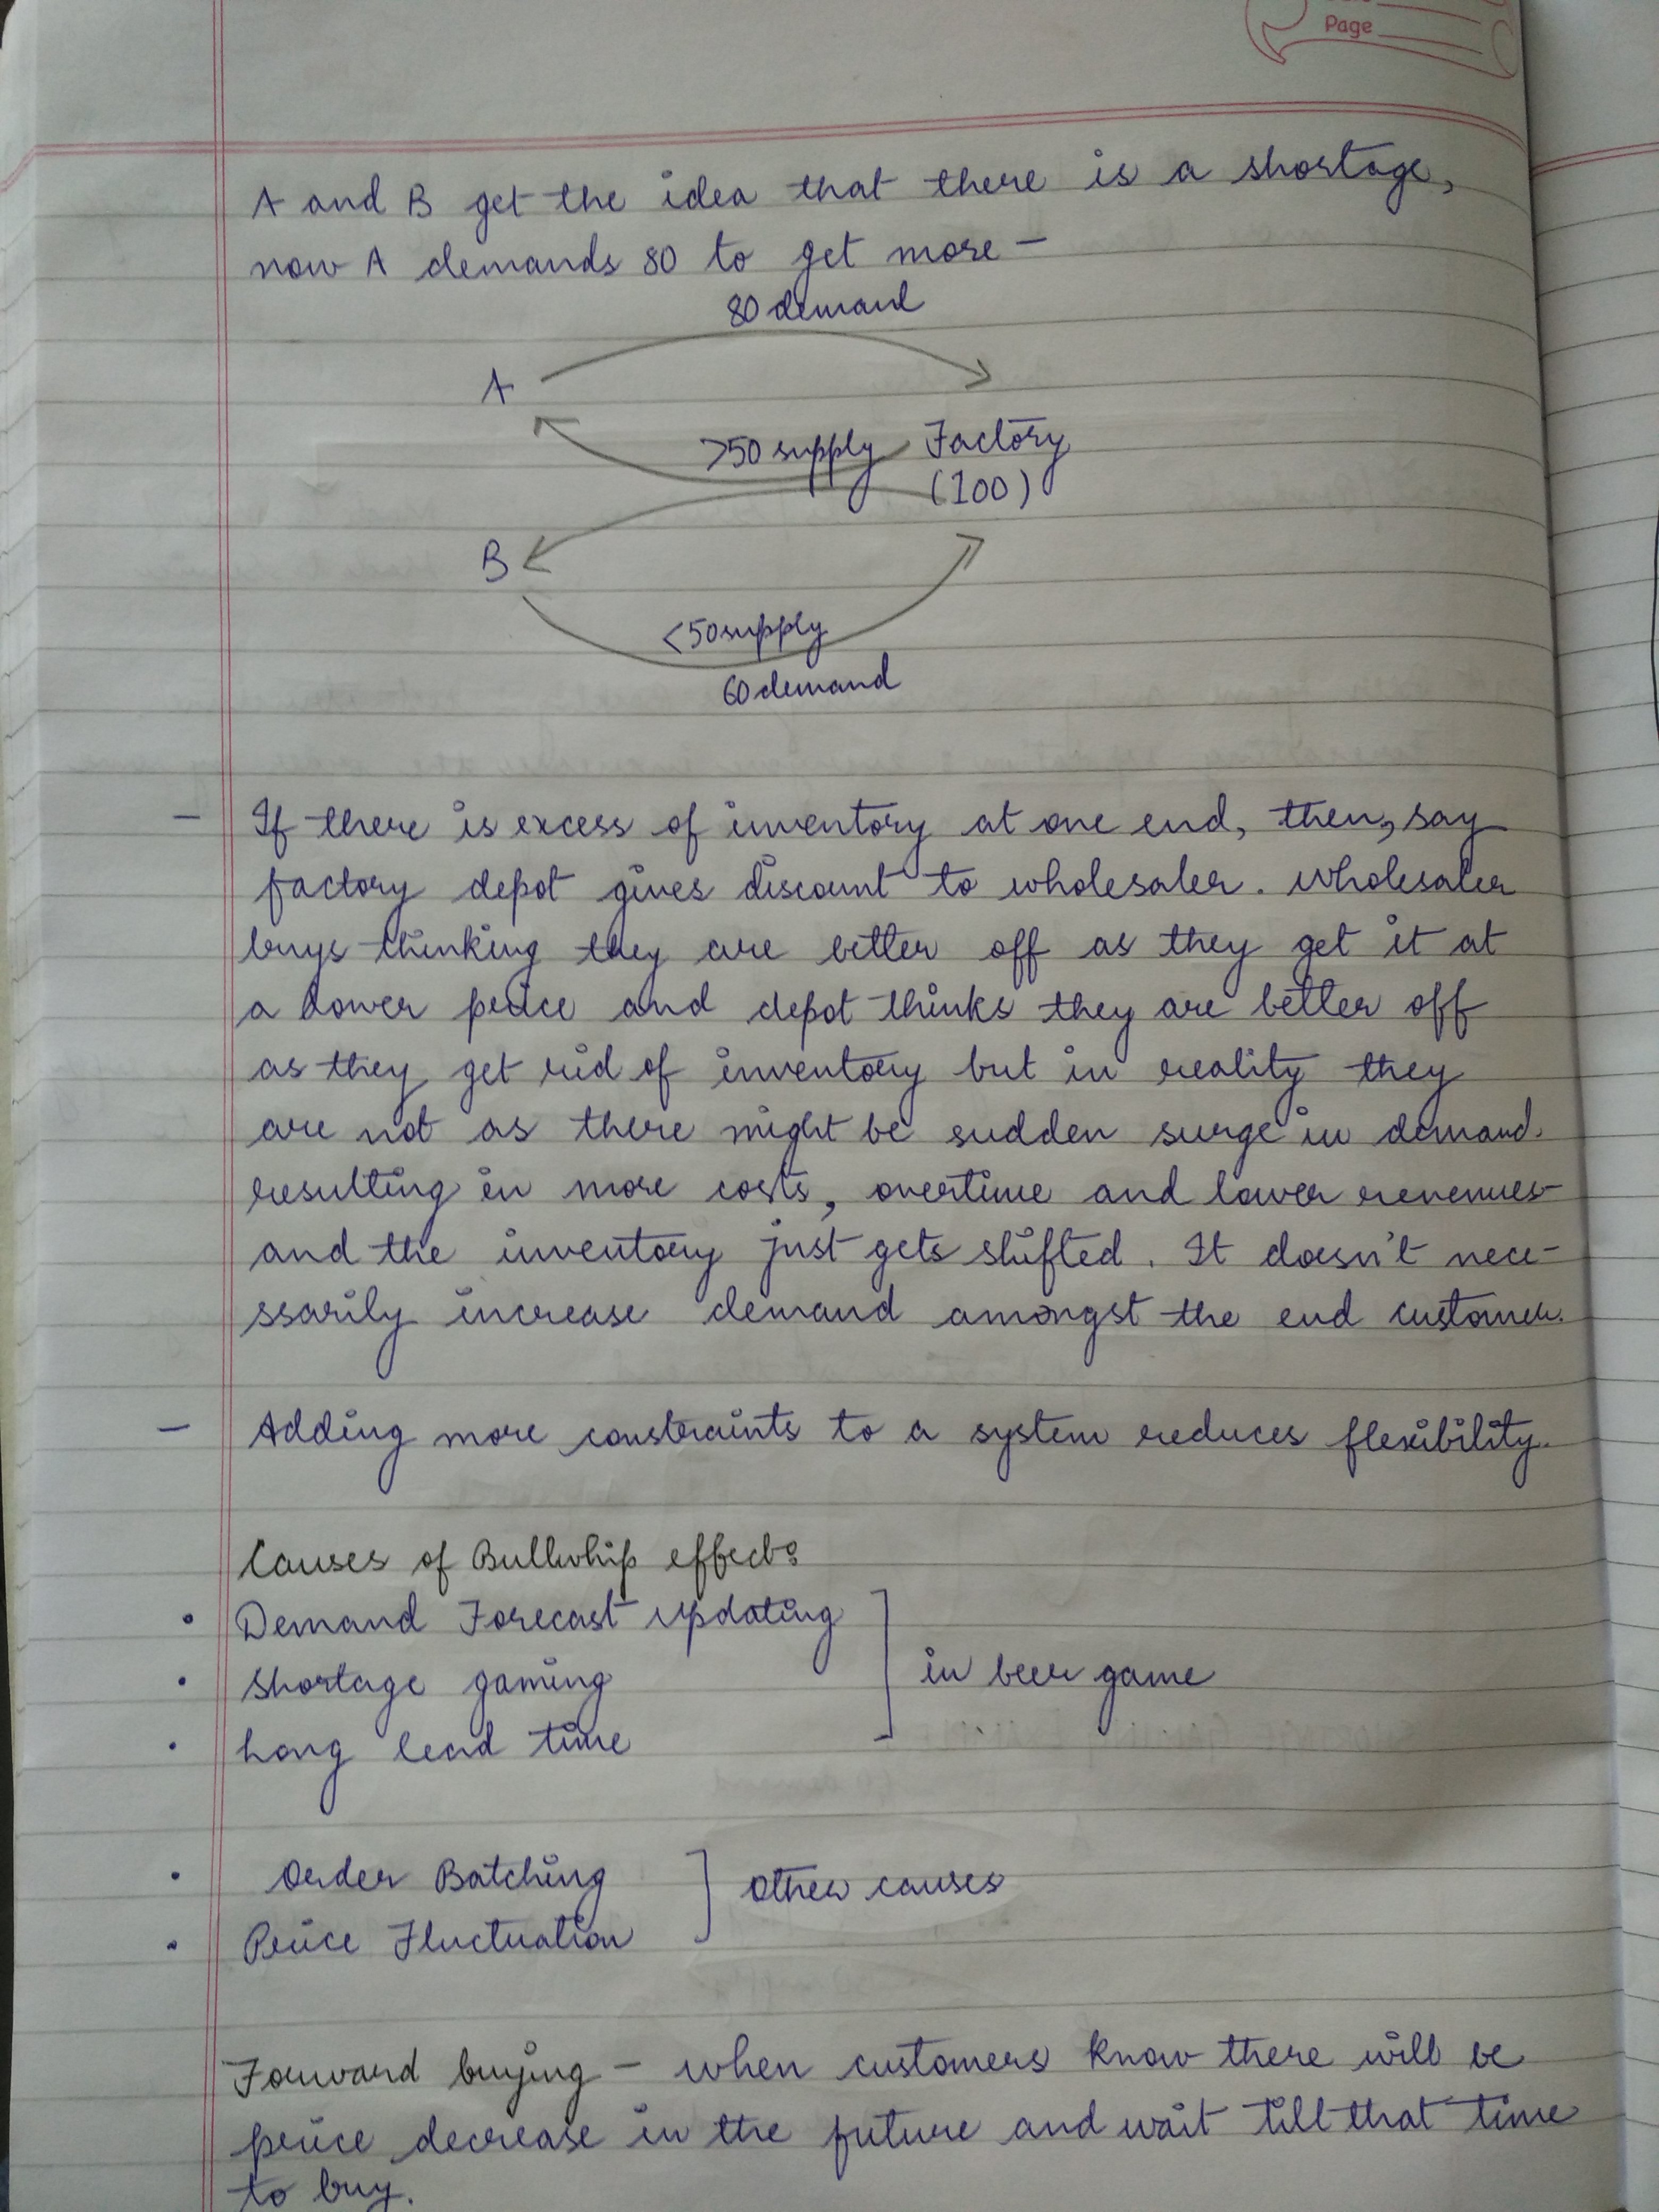 Page
A and B get the idea that there is a shortage,
now A demands 80 to get more -
80 demand
A
>50 supply Factory
(100)
B
<50 supply
60 demand
- If there is excess of inventory at one end, then, say
factory depot gives discount to wholesaler. Wholesaler
buys thinking they are better off as they get it at
a lower price and depot thinks they are better off
as they get rid of inventory but in reality they
are not as there might be sudden surge in demand.
resulting in more costs, overtime and lower revenues
and the inventory just gets shifted. It doesn't nece-
ssarily increase demand amongst the end customer.
- Adding more constraints to a system reduces flexibility.
Causes of Bullwhip effect:
• Demand Forecast updating
• Shortage gaming
in beer game
• Long lead time
• Order Batching
other causes
• Price Fluctuation
Forward buying - when customers know there will be
price decrease in the future and wait till that time
to buy.